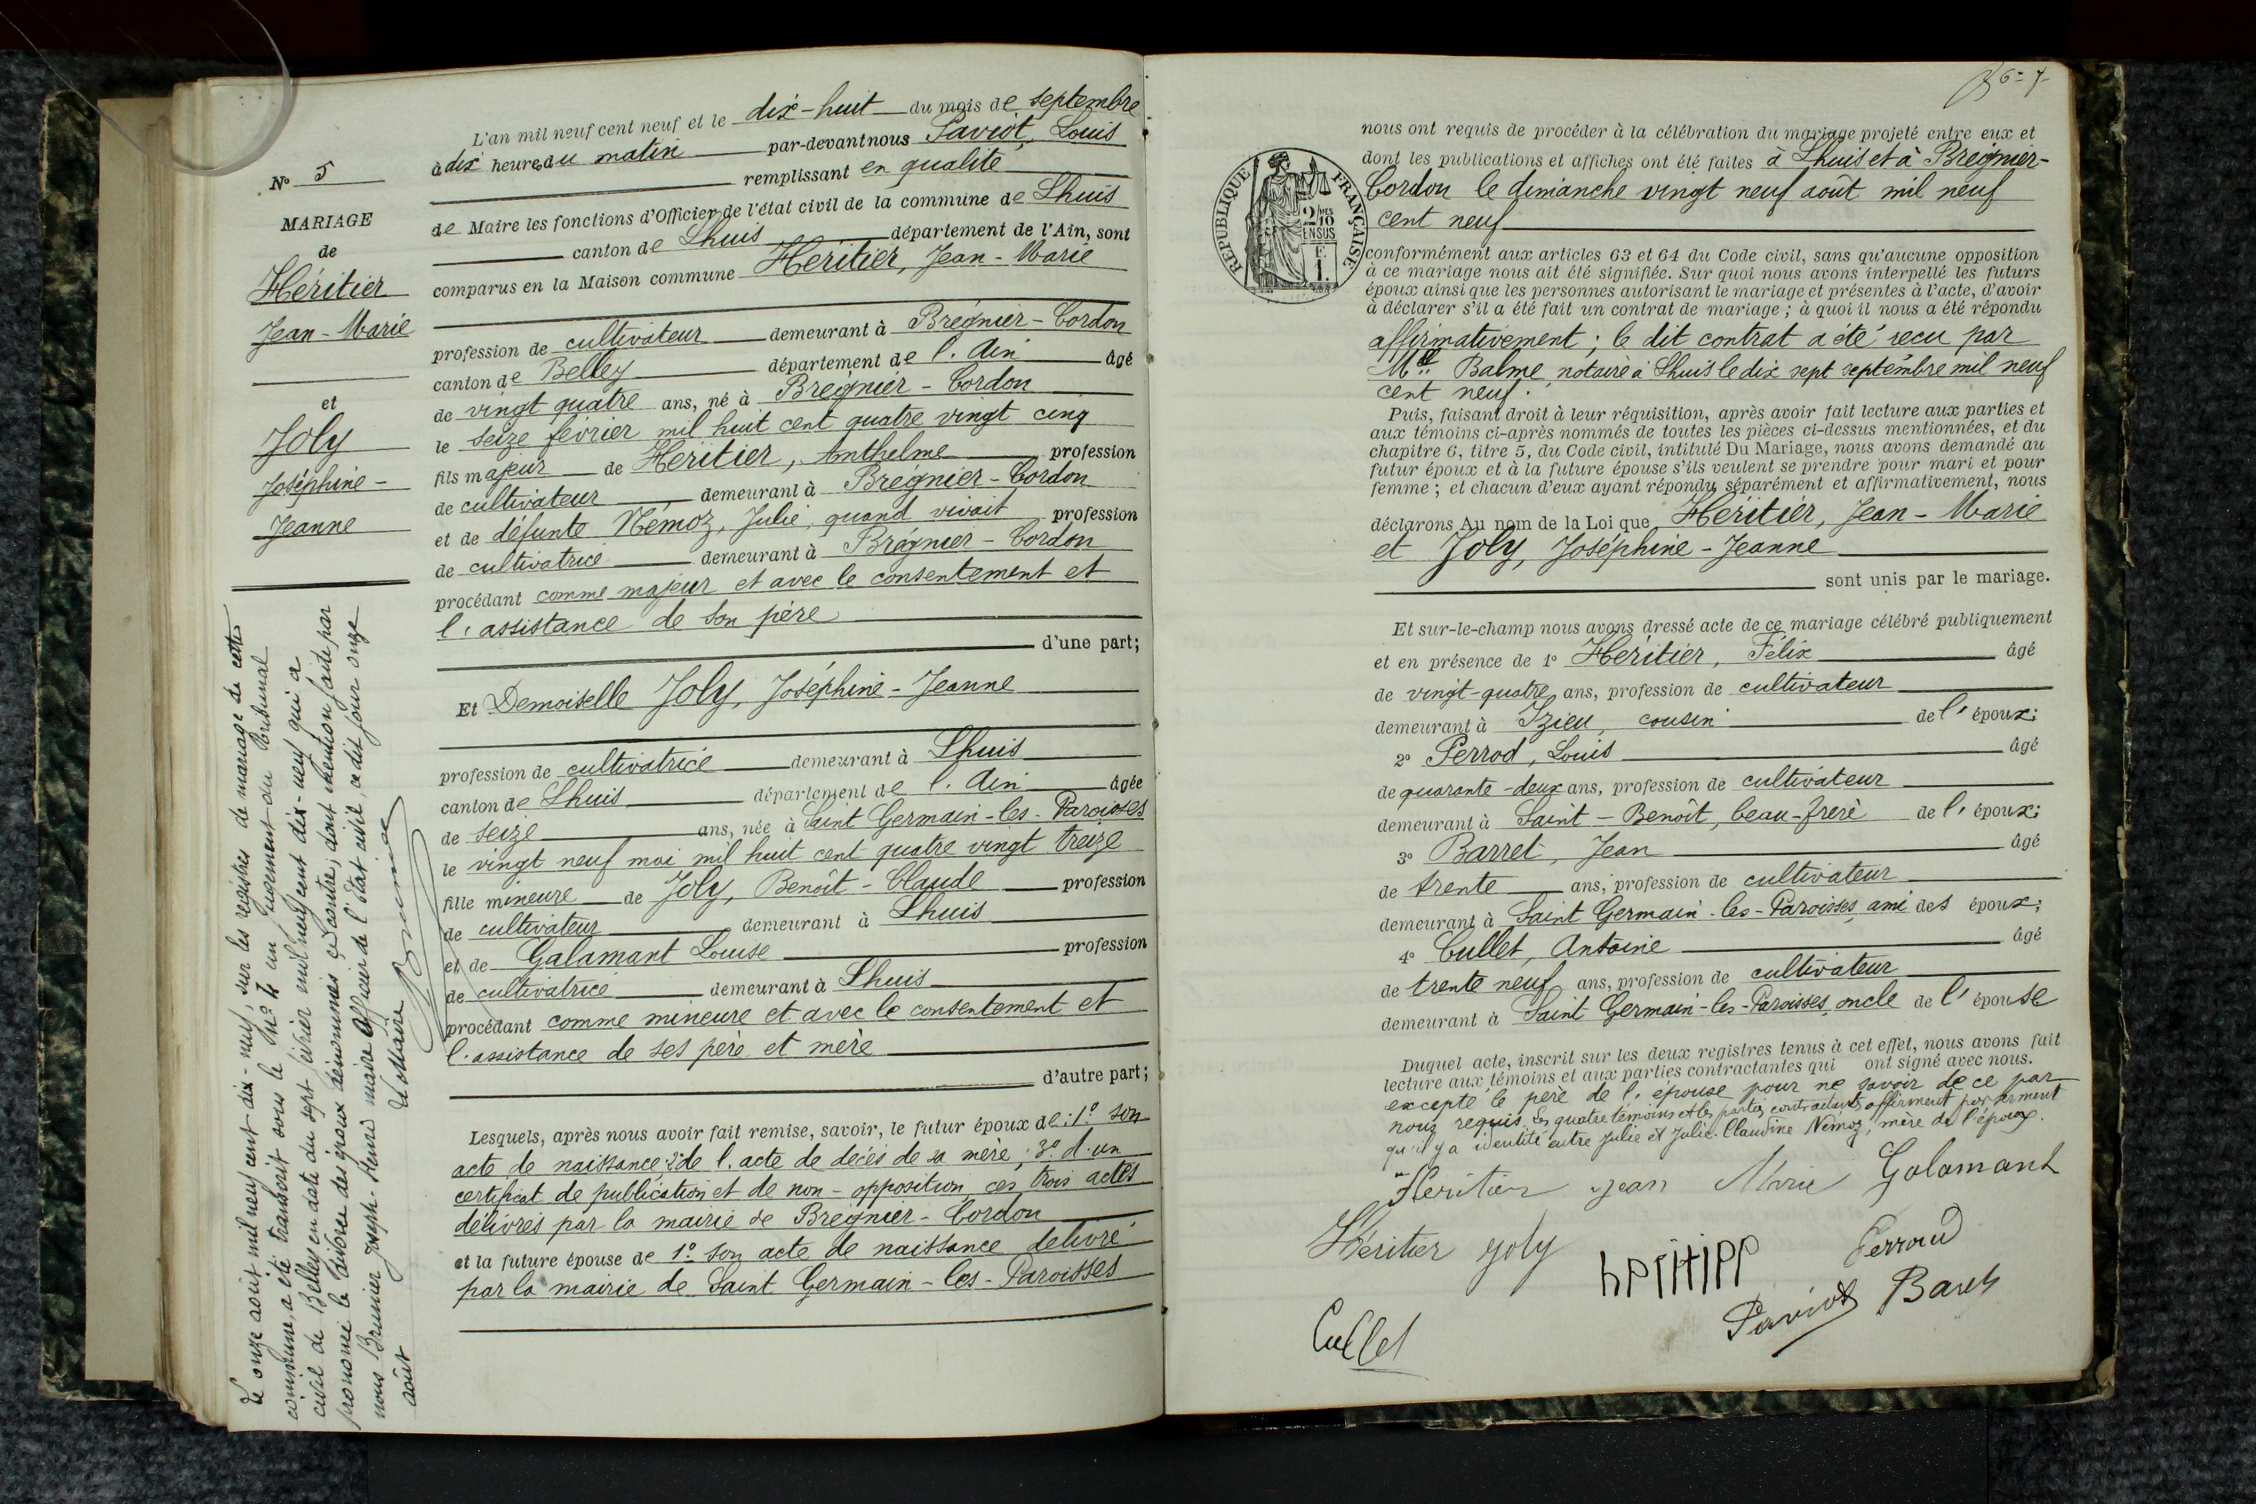 L'an mil neuf cent neuf et le dix-huit du mois de septembre
à dix heures du matin par-devant nous Paviot, Louis
remplissant en qualité
de Maire les fonctions d'Officier de l'état civil de la commune de Lhuis
canton de Lhuis département de l'Ain, sont
comparus en la Maison commune Héritier, Jean-Marie
profession de cultivateur demeurant à Brégnier-Cordon
canton de Belley département de l'Ain âgé
de vingt quatre ans, né à Brégnier-Cordon
le seize février mil huit cent quatre vingt cinq
fils majeur de Héritier, Anthelme profession
de cultivateur demeurant à Brégnier-Cordon
et de défunte Némoz, Julie, quand vivait profession
de cultivatrice demeurant à Brégnier-Cordon
procédant comme majeur et avec le consentement et
l'assistance de son père
d'une part;
Et Demoiselle Joly, Joséphine-Jeanne
profession de cultivatrice demeurant à Lhuis
canton de Lhuis département de l'Ain âgée
de seize ans, née à Saint Germain-les-Paroisses
le vingt neuf mai mil huit cent quatre vingt treize
fille mineure de Joly, Benoît-Claude profession
de cultivateur demeurant à Lhuis
et de Galamant Louise profession
de cultivatrice demeurant à Lhuis
procédant comme mineure et avec le consentement et
l'assistance de ses père et mère
d'autre part;
Lesquels, après nous avoir fait remise, savoir, le futur époux de: 1º son
acte de naissance 2º de l'acte de décès de sa mère; 3º d'un
certificat de publication et de non-opposition, ces trois actes
délivrés par la mairie de Brégnier-Cordon
et la future épouse de 1º son acte de naissance délivré
par la mairie de Saint Germain-les-Paroisses
Nº 5
MARIAGE
de
Héritier
Jean-Marie
et
Joly
Joséphine-
Jeanne
Le onze août mil neuf cent dix-neuf, sur les registres de mariage de cette
commune, a été transcrit sous le Nº 4 un jugement du Tribunal
civil de Belley en date du sept février mil neuf cent dix-neuf qui a
prononcé le divorce des époux dénommés ci-contre, dont mention faite par
nous Brunier Joseph-Henri maire officier de l'état civil, ce dit jour onze
août Le Maire
nous ont requis de procéder à la célébration du mariage projeté entre eux et
dont les publications et affiches ont été faites à Lhuis et à Brégnier-
Cordon le dimanche vingt neuf août mil neuf
cent neuf
conformément aux articles 63 et 64 du Code civil, sans qu'aucune opposition
à ce mariage nous ait été signifiée. Sur quoi nous avons interpellé les futurs
époux ainsi que les personnes autorisant le mariage et présentes à l'acte, d'avoir
à déclarer s'il a été fait un contrat de mariage; à quoi il nous a été répondu
affirmativement; le dit contrat a été recu par
Me Balme, notaire à Lhuis le dix sept septembre mil neuf
cent neuf.
Puis, faisant droit à leur réquisition, après avoir fait lecture aux parties et
aux témoins ci-après nommés de toutes les pièces ci-dessus mentionnées, et du
chapitre 6, titre 5, du Code civil, intitulé Du Mariage, nous avons demandé au
futur époux et à la future épouse s'ils veulent se prendre pour mari et pour
femme; et chacun d'eux ayant répondu séparément et affirmativement, nous
déclarons Au nom de la Loi que Héritier, Jean-Marie
et Joly, Joséphine-Jeanne
sont unis par le mariage.
Et sur-le-champ nous avons dressé acte de ce mariage célébré publiquement
et en présence de 1º Héritier, Félix âgé
de vingt-quatre ans, profession de cultivateur
demeurant à Izieu, cousin de l'époux;
2º Perrod, Louis âgé
de quarante-deux ans, profession de cultivateur
demeurant à Saint-Benoît, beau-frère de l'époux;
3º Barret, Jean âgé
de trente ans, profession de cultivateur
demeurant à Saint Germain-les-Paroisses, ami des époux;
4º Cullet, Antoine âgé
de trente neuf ans, profession de cultivateur
demeurant à Saint Germain-les-Paroisses, oncle de l'épouse
Duquel acte, inscrit sur les deux registres tenus à cet effet, nous avons fait
lecture aux témoins et aux parties contractantes qui ont signé avec nous.
excepté le père de l'épouse pour ne savoir de ce par
nous requis. Les quatre témoins et les parties contractantes affirment par serment
qu'il y a identité entre Julie et Julie-Claudine Némoz, mère de l'époux.
Heritier Jean Marie Galamant
Héritier Joly
Perroud
Cullet
Paviot
RÉPUBLIQUE FRANÇAISE
2/10 MES
EN SUS
F
1.